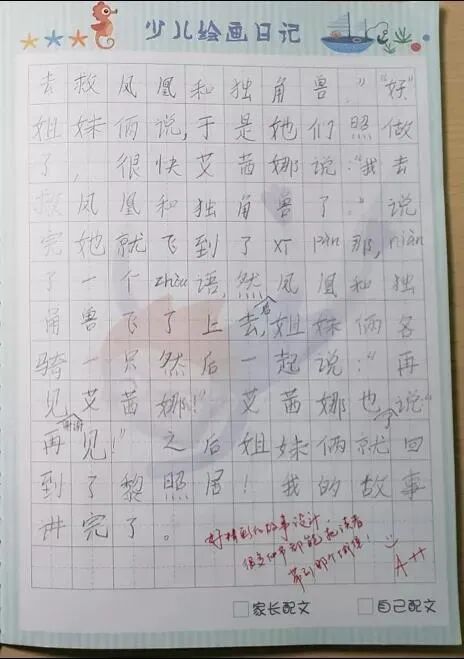 少儿绘画日记
去救凤凰和独角兽。”“好”
姐妹俩说,于是她们照做
了,很快艾茜娜说:“我去
救凤凰和独角兽了。”说
完她就飞到了XT pàn那,niàn
了一个zhòu语,然后凤凰和独
角兽飞了上去,姐妹俩各
骑一只然后一起说:“再
见艾茜娜!”艾茜娜也说“
再见!”之后姐妹俩就回
到了黎照居!我的故事
讲完了。
好精彩的故事设计,
但文细节都能把读者
带到那个情境!
A++
家长配文 自己配文